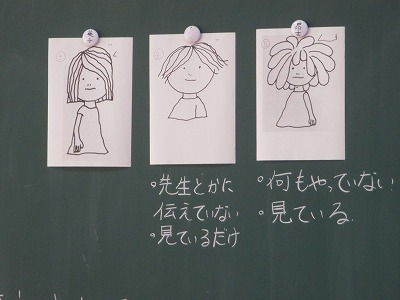 ・先生とかに
伝えていない
・見ているだけ
・何もやっていない
・見ている。